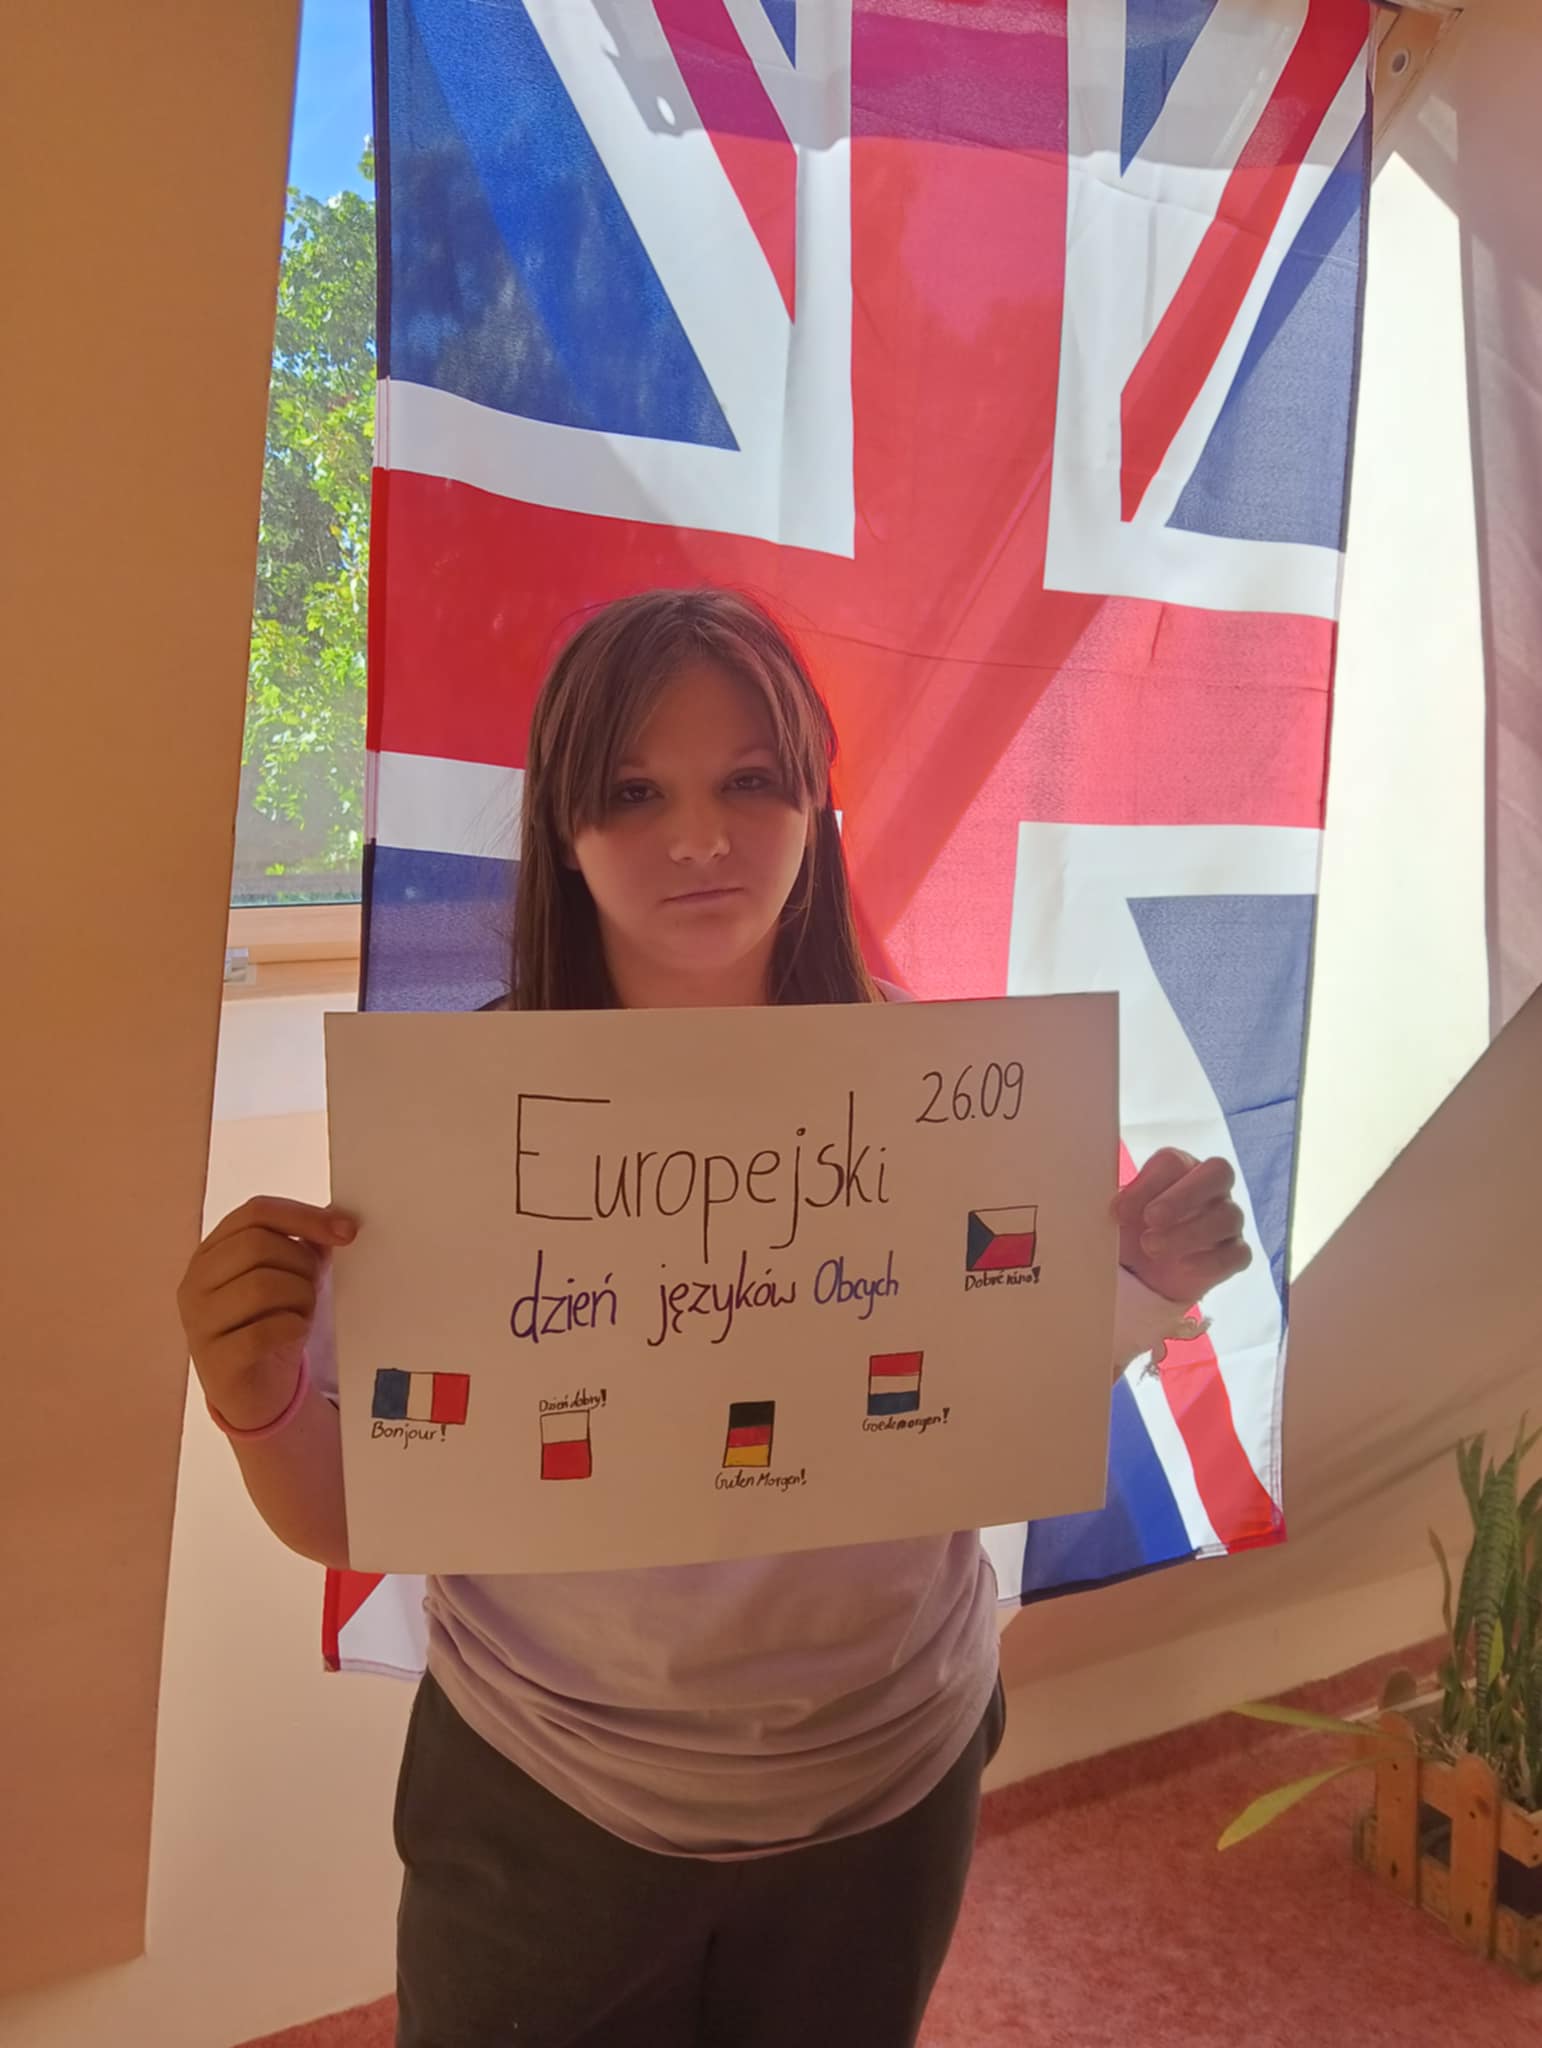 26.09
Europejski
dzień języków Obcych
Dobré ráno!
Bonjour!
Dzień dobry!
Guten Morgen!
Goedemorgen!